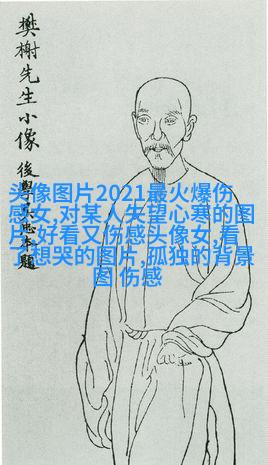 樊榭先生小像
後學忠本題
头像图片2021最火爆伤
感女,对某人失望心寒的图
片,好看又伤感头像女,看
了想哭的图片,孤独的背景
图 伤感